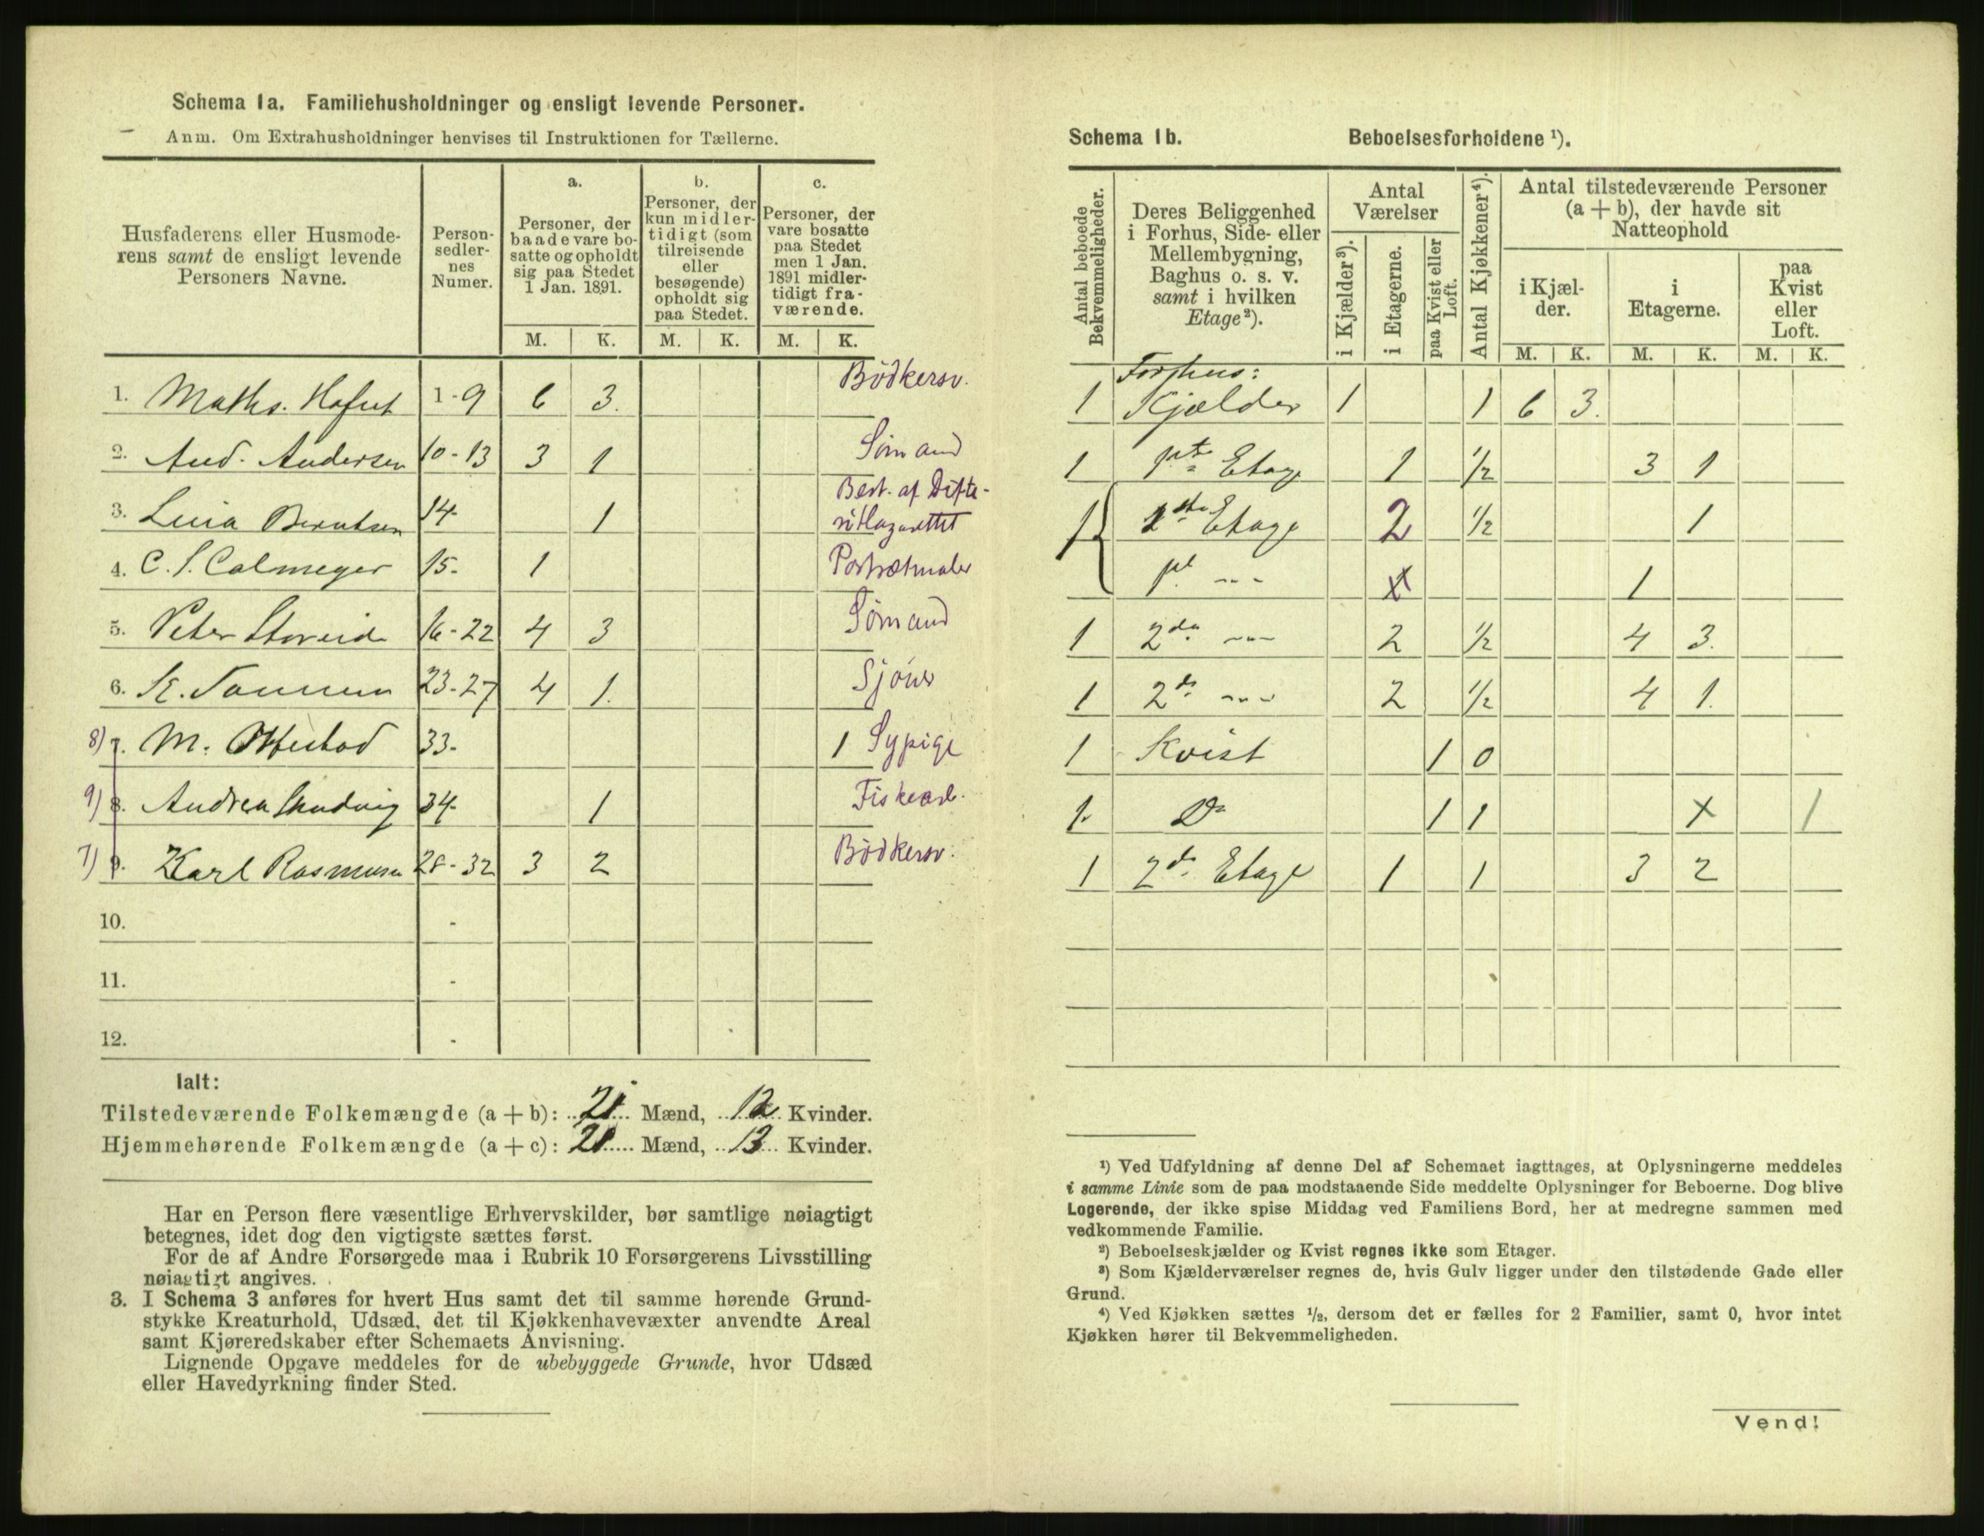 Schema 1a. Familiehusholdninger og ensligt levende Personer.
Anm. Om Extrahusholdninger henvises til Instruktionen for Tællerne.
Husfaderens eller Husmoderens samt de ensligt levende Personers Navne.
Personsedlernes Numer.
a.
Personer, der baade vare bosatte og opholdt sig paa Stedet 1 Jan. 1891.
b.
Personer, der kun midlertidigt (som tilreisende eller besøgende) opholdt sig paa Stedet.
c.
Personer, der vare bosatte paa Stedet men 1 Jan. 1891 midlertidigt fraværende.
M. K. M. K. M. K.
1. Maths. 1-9 6 3. Bödkersv.
2. And. Andersen 10-13 3 1 Sömand
3. Berntsen 14- 1 Best. af Difteritlazarettet
4. C. S. Calmeyer 15- 1 Portrætmaler
5. Peter 16-22 4 3 Sömand
6. 23-27 4 1. Sjöuer
8) 7. M. 33- 1 Sypige
9) 8. Andrea 34- 1 Fiskearb.
7) 9. Karl Rasmusen 28-32 3 2 Bödkersv.
10. -
11. -
12. -
Ialt:
Tilstedeværende Folkemængde (a + b): 21 Mænd, 12 Kvinder.
Hjemmehørende Folkemængde (a + c): 21 Mænd, 13 Kvinder.
Har en Person flere væsentlige Erhvervskilder, bør samtlige nøiagtigt
betegnes, idet dog den vigtigste sættes først.
For de af Andre Forsørgede maa i Rubrik 10 Forsørgerens Livsstilling
nøiagtigt angives.
3. I Schema 3 anføres for hvert Hus samt det til samme hørende Grund-
stykke Kreaturhold, Udsæd, det til Kjøkkenhavevæxter anvendte Areal
samt Kjøreredskaber efter Schemaets Anvisning.
Lignende Opgave meddeles for de ubebyggede Grunde, hvor Udsæd
eller Havedyrkning finder Sted.
Schema 1b. Beboelsesforholdene ¹).
Antal beboede Bekvemmeligheder.
Deres Beliggenhed i Forhus, Side- eller Mellembygning, Baghus o. s. v. samt i hvilken Etage²).
Antal Værelser
i Kjælder³).
i Etagerne.
paa Kvist eller Loft.
Antal Kjøkkener⁴).
Antal tilstedeværende Personer (a + b), der havde sit Natteophold
i Kjælder.
i Etagerne.
paa Kvist eller Loft.
M. K. M. K. M. K.
Forhus:
1 Kjælder 1 1 6 3.
1 1ste Etage 1 1/2 3 1
1 1ste Etage 2 1/2 1
1st -- 1
1 2den --- 2 1/2 4 3.
1 2d. --- 2 1/2 4 1.
1 Kvist 1 0
1. Do 1 1 x 1
1 2d. Etage 1 1 3 2
¹) Ved Udfyldning af denne Del af Schemaet iagttages, at Oplysningerne meddeles
i samme Linie som de paa modstaaende Side meddelte Oplysninger for Beboerne. Dog blive
Logerende, der ikke spise Middag ved Familiens Bord, her at medregne sammen med
vedkommende Familie.
²) Beboelseskjælder og Kvist regnes ikke som Etager.
³) Som Kjælderværelser regnes de, hvis Gulv ligger under den tilstødende Gade eller
Grund.
⁴) Ved Kjøkken sættes ¹/₂, dersom det er fælles for 2 Familier, samt 0, hvor intet
Kjøkken hører til Bekvemmeligheden.
Vend!